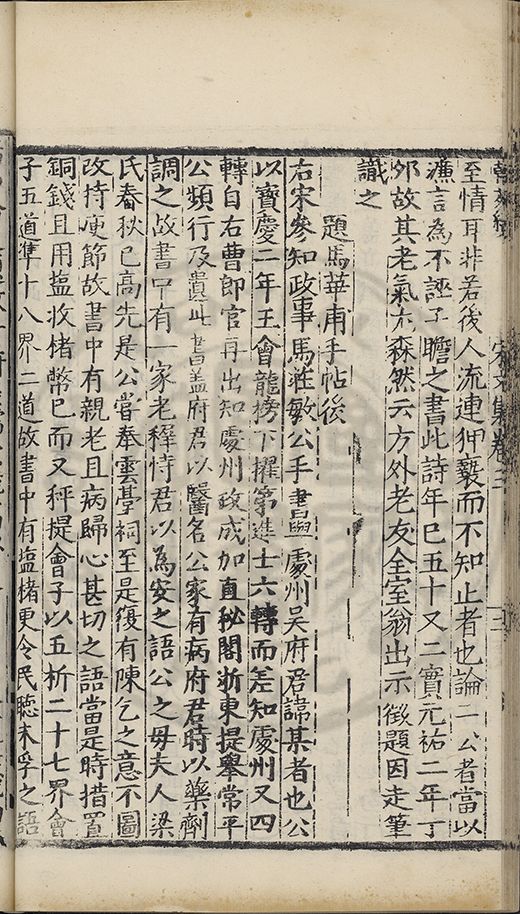 宋文集卷三
至情耳非若後人流連狎䙝而不知止者也論二公者當以
濂言為不誣子瞻之書此詩年已五十又二實元祐二年丁
夘故其老氣尤森然云方外老友全室翁出示徵題因走筆
識之
題馬華甫手帖後
右宋參知政事馬莊敏公手書與處州吳府君諱某者也公
以寳慶二年王會龍榜下擢第進士六轉而差知處州又四
轉自右曹郎官再出知處州政成加直秘閣浙東提舉常平
公頻行乃遺此書盖府君以醫名公家有病府君時以藥劑
調之故書中有一家老稺恃君以為安之語公之母夫人梁
氏春秋已髙先是公嘗奉雲䑓祠至是復有陳乞之意不圖
改持庾節故書中有親老且病歸心甚切之語當是時措置
銅錢且用塩收楮幣已而又秤提會子以五析二十七界會
子五道凖十八界二道故書中有塩楮更令民聽未孚之語